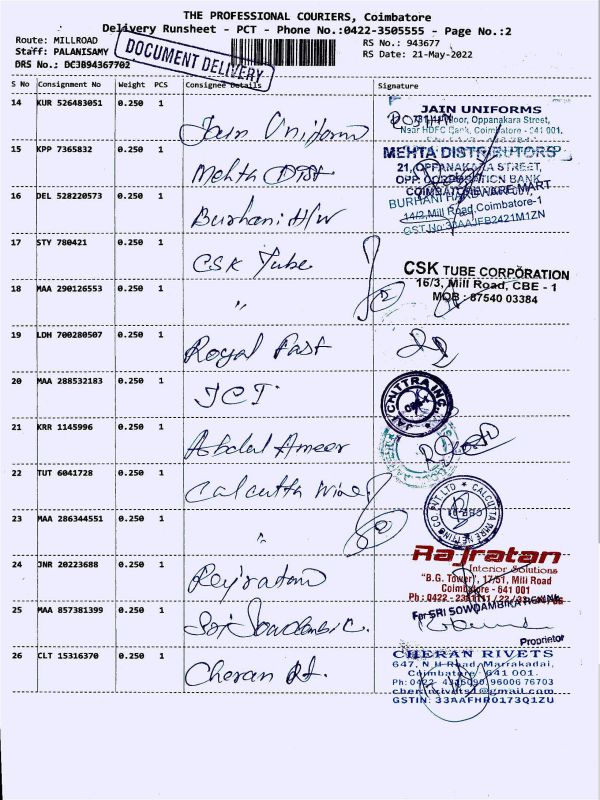 THE PROFESSIONAL COURIERS, Coimbatore
Delivery Runsheet - PCT - Phone No.:0422-3505555 - Page No.:2
Route: MILLROAD
RS No.: 943677
Staff: PALANISAMY
RS Date: 21-May-2022
DRS No.: DCJB94367702
DOCUMENT DELIVERY
S No Consignment No Weight PCS Consignee Details Signature
14 KUR 526483051 0.250 1 Jain Uniform
JAIN UNIFORMS
Oppanakara Street,
Near HDFC Bank, Coimbatore - 641 001.
15 KPP 7365832 0.250 1 Mehta Dist
MEHTA DISTRIBUTORS
21, OPPANAKARA STREET,
OPP. CORPORATION BANK,
16 DEL 528220573 0.250 1 Burhani H/W
BURHANI HARDWARE MART
14/2, Mill Road, Coimbatore-1
17 STY 780421 0.250 1 CSK Tube
CSK TUBE CORPORATION
16/3, Mill Road, CBE - 1
MOB : 87540 03384
18 MAA 290126553 0.250 1 "
19 LDH 700280507 0.250 1 Royal Fast
20 MAA 288532183 0.250 1 JCT
21 KRR 1145996 0.250 1 Abdul Ameer
22 TUT 6041728 0.250 1 Calcutta Wire
CALCUTTA WIRE NETTING CO. PVT LTD
23 MAA 286344551 0.250 1 "
24 JNR 20223688 0.250 1 Rejratan
Rajratan
Interior Solutions
"B.G. Tower", 17/51, Mill Road
Coimbatore - 641 001
25 MAA 857381399 0.250 1 Sri Sowdambi C.
For SRI SOWDAMBIKA
Proprietor
26 CLT 15316370 0.250 1 Cheran Rt.
CHERAN RIVETS
647, N H Road, Marrakadai,
Coimbatore - 641 001.
96006 76703
GSTIN: 33AAFHR0173Q1ZU